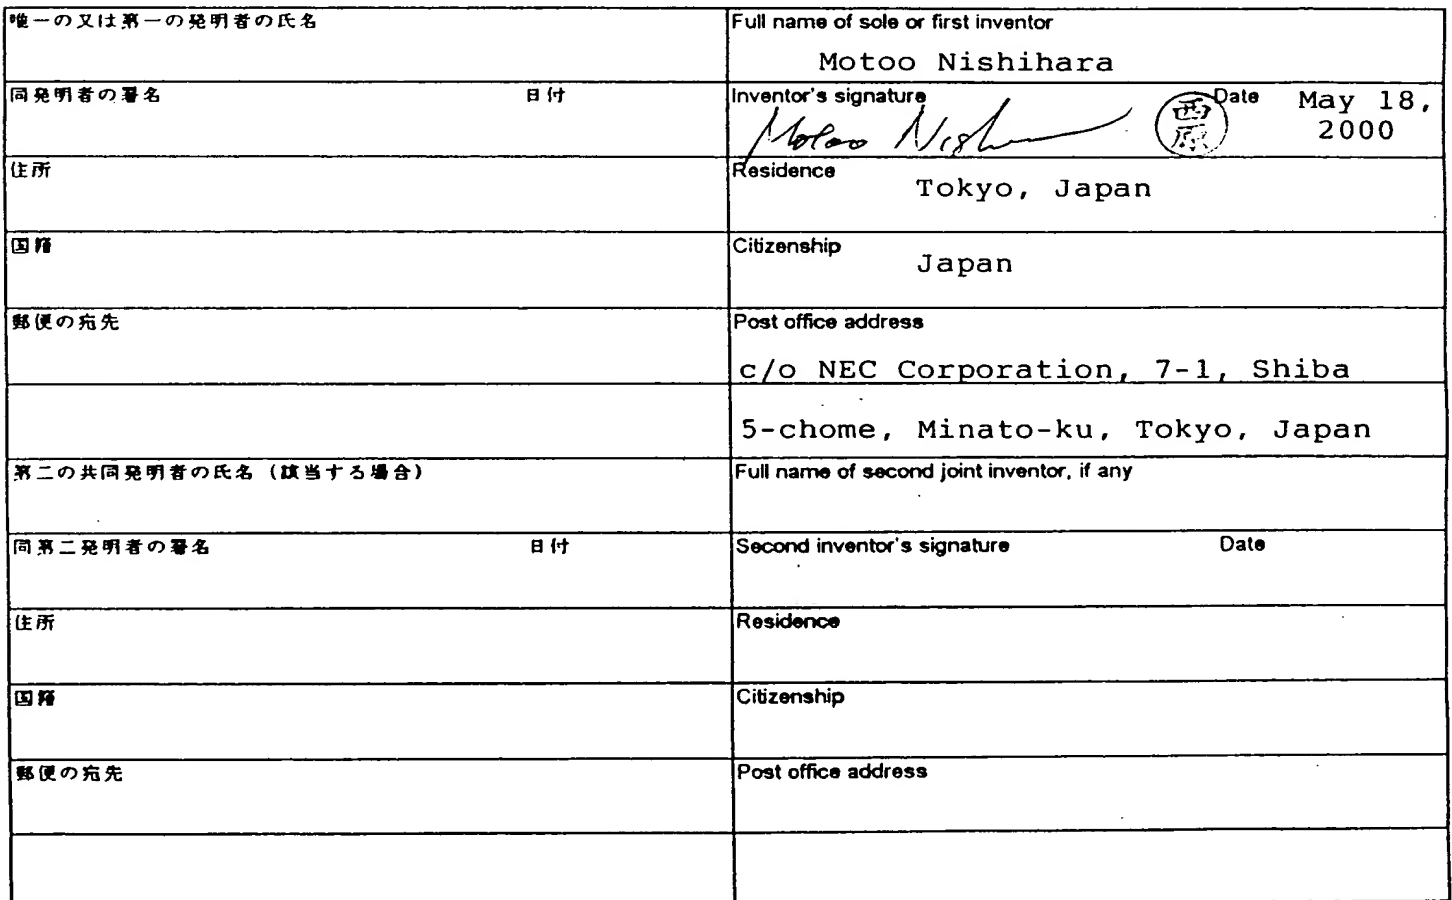 唯一の又は第一の発明者の氏名
Full name of sole or first inventor
Motoo Nishihara
同発明者の署名 日付
Inventor's signature Date May 18,
2000
Motoo Nish
西原
住所
Residence
Tokyo, Japan
国籍
Citizenship
Japan
郵便の宛先
Post office address
c/o NEC Corporation, 7-1, Shiba
5-chome, Minato-ku, Tokyo, Japan
第二の共同発明者の氏名 (該当する場合)
Full name of second joint inventor, if any
同第二発明者の署名 日付
Second inventor's signature Date
住所
Residence
国籍
Citizenship
郵便の宛先
Post office address